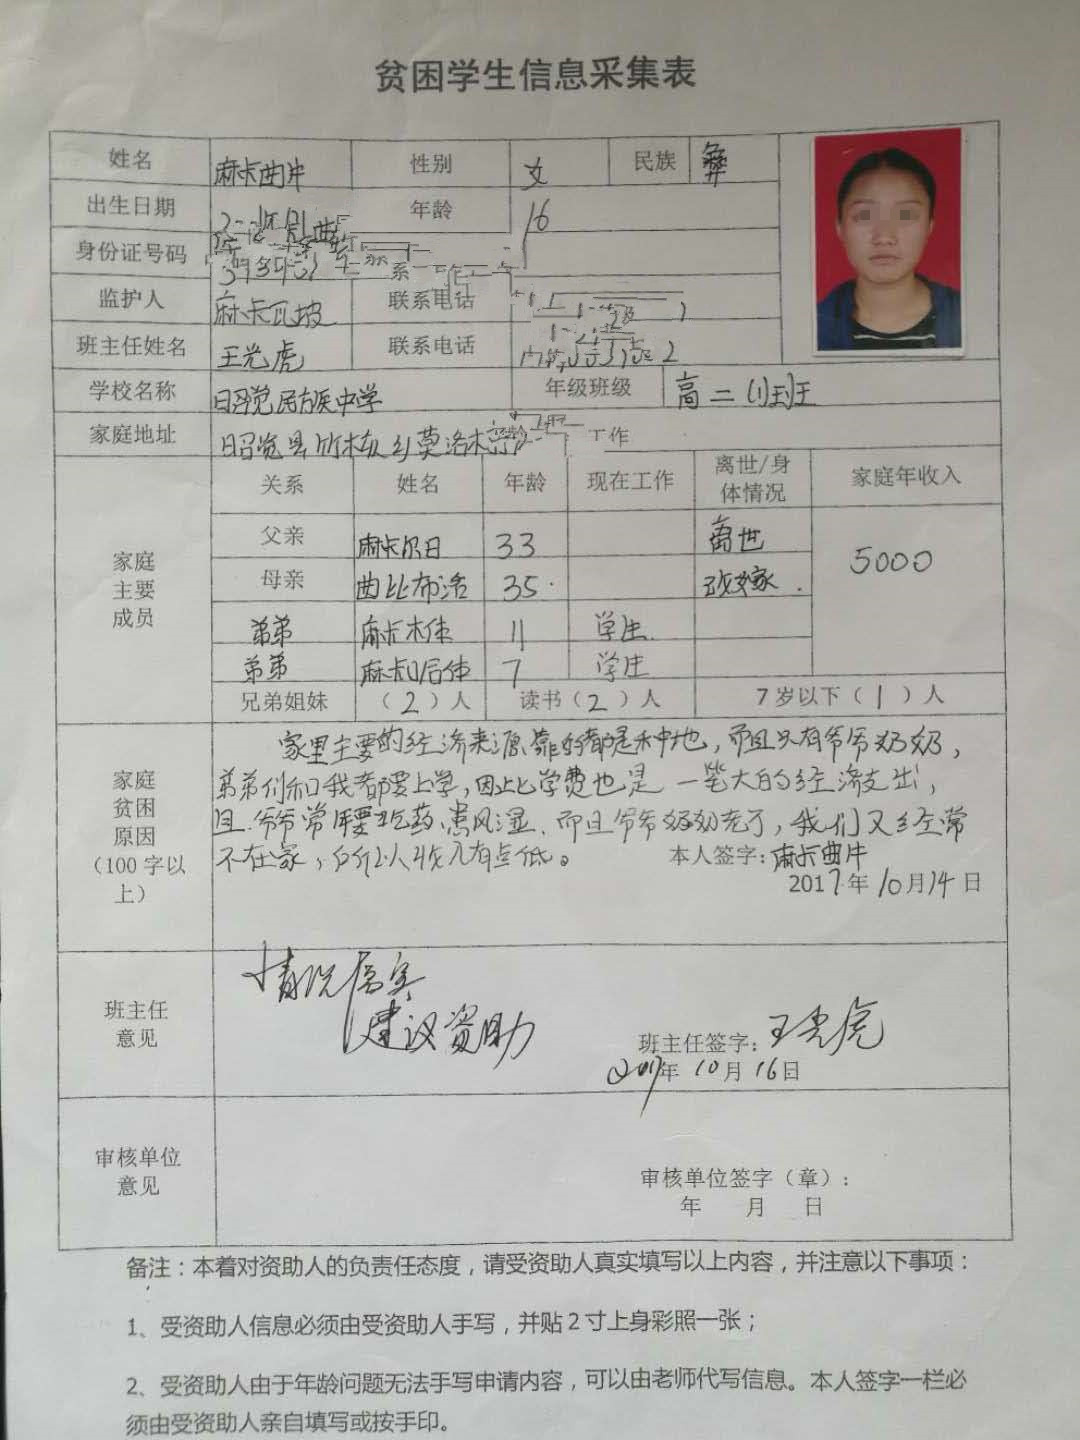 贫困学生信息采集表
姓名 麻卡曲片 性别 女 民族 彝
出生日期 年龄 16
身份证号码
监护人 麻卡瓦坡 联系电话
班主任姓名 王光虎 联系电话
学校名称 昭觉民族中学 年级班级 高二(1)班
家庭地址 昭觉县竹核乡莫洛村
家庭主要成员 关系 姓名 年龄 现在工作 离世/身体情况 家庭年收入
父亲 麻卡尔日 33 离世 5000
母亲 曲比布洛 35 改嫁.
弟弟 麻卡木体 11 学生
弟弟 麻卡 7 学生
兄弟姐妹 (2)人 读书(2)人 7岁以下(1)人
家庭贫困原因(100字以上)
家里主要的经济来源靠的都是种地,而且只有爷爷奶奶,
弟弟们和我都要上学,因此学费也是一笔大的经济支出,
且爷爷常年要吃药,患风湿、而且爷爷奶奶老了,我们又经常
不在家,所以收入有点低。 本人签字:麻卡曲片
2017年10月14日
班主任意见
情况属实
建议资助
班主任签字:王光虎
2017年10月16日
审核单位意见
审核单位签字(章):
年 月 日
备注:本着对资助人的负责任态度,请受资助人真实填写以上内容,并注意以下事项:
1、受资助人信息必须由受资助人手写,并贴2寸上身彩照一张;
2、受资助人由于年龄问题无法手写申请内容,可以由老师代写信息。本人签字一栏必
须由受资助人亲自填写或按手印。